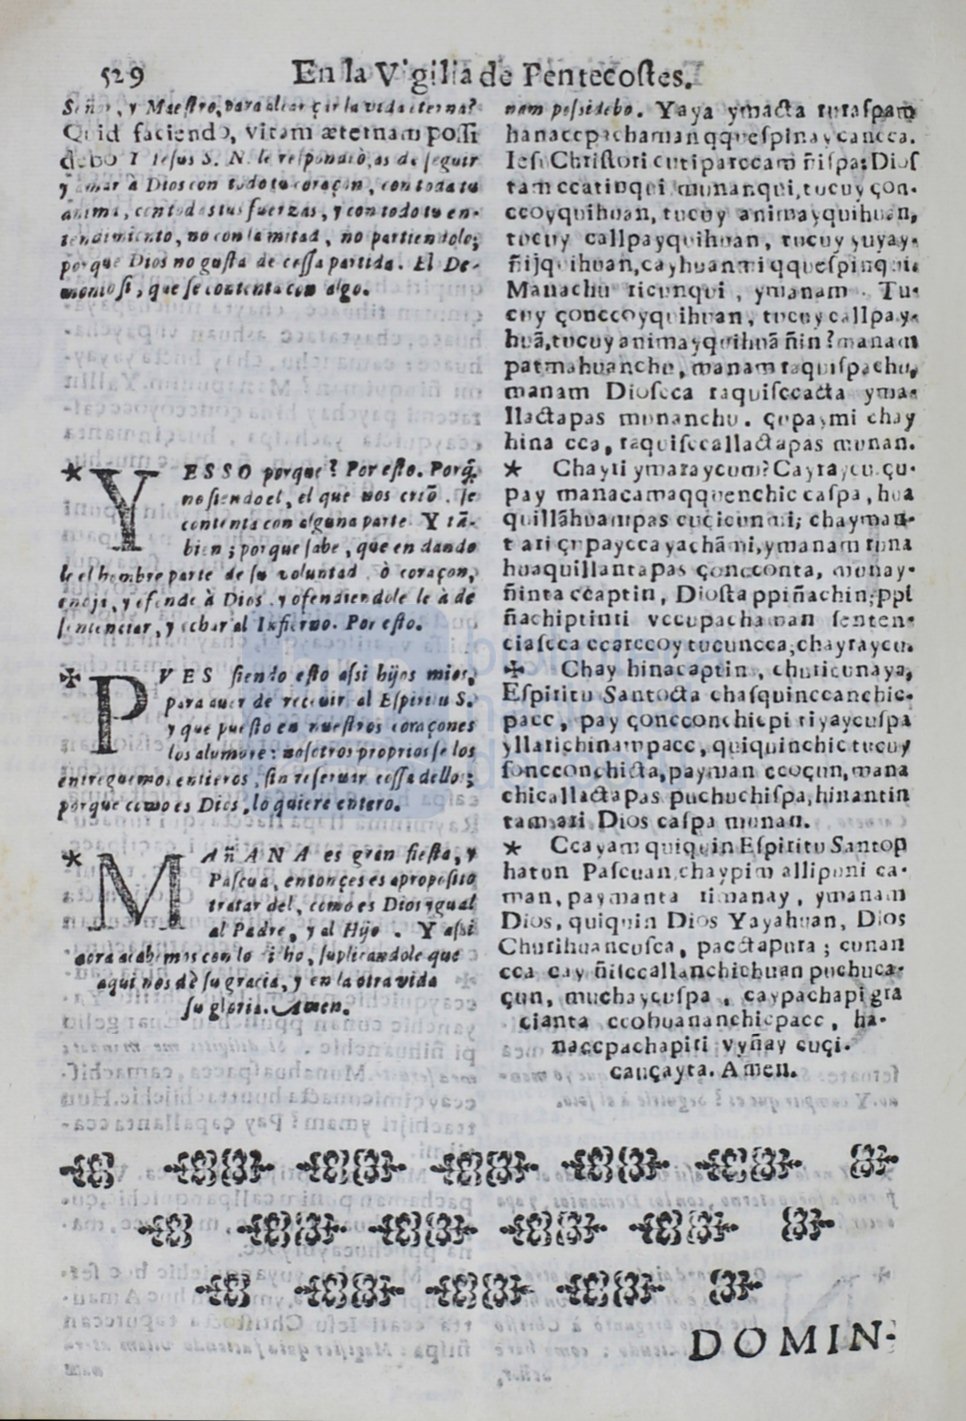 529 En la Vigilia de Pentecostes.
Señor, y Maestro, para alcançar la vida eterna?
Quid faciendo, vitam æternam possi
debo? Iesus S. N. le respondiò, as de seguir
y amar à Dios con todo tu coraçon, con toda tu
anima, con todas tus fuerzas, y con todo tu en-
tendimiento, no con la mitad, no partiendolo;
porque Dios no gusta de cossa partida. El De-
monio si, que se contenta con algo.
* YESSO porque? Por esto. Porq̃
no siendo el, el que nos criò, se
contenta con alguna parte. Y tã-
bien; porque sabe, que en dando
le el hombre parte de su voluntad, ò coraçon,
enoja, y ofende à Dios, y ofendiendole le à de
sentenciar, y echar al Infierno. Por esto.
✠ PVES siendo esto assi hijos mios,
para auer de recebir al Espiritu S.
y que puesto en nuestros coraçones
los alumbre: nosotros proprios se los
entreguemos entieros, sin reseruar cossa dello;
porque como es Dios, lo quiere entero.
* MAñANA es gran fiesta, y
Pascua, entonçes es aproposito
tratar del, como es Dios ygual
al Padre, y al Hijo. Y assi
aora acabemos con lo dicho, suplicandole que
aqui nos dè su gracia, y en la otra vida
su gloria. Amen.
nam possidebo. Yaya ymacta ruraspam
hanaccpachaman qquespina y caucca.
Iesu Christori cutiparccam ñispa: Dios
tam ccatinqui munanqui, tucuy çon-
ccoyquihuan, tucuy animayquihuan,
tucuy callpayquihuan, tucuy yuyay-
ñijquihuan, cayhuanmi qquespinqui.
Manachu ricunqui, ymanam. Tu-
cuy çonccoyquihuan, tucuy callpay-
huã, tucuy animayquihuã ñin? manam
patmahuanchu, manam raquispachu,
manam Dioscca raquisccacta yma-
llactapas munanchu. çupaymi chay
hina cca, raquisccallactapas munan.
* Chayri ymaraycum? Cayraycu. çu-
pay manacamaqquenchic caspa, hua
quillãhuampas cuçicunmi; chayman-
t ari çupaycca yachãmi, ymanam runa
huaquillantapas çoncconta, munay-
ñinta ccaptin, Diosta ppiñachin; ppi
ñachiptinti vccupachaman senten-
ciascca ccarccoy tucuncca; chayraycu.
✠ Chay hinacaptin, churicunaya,
Espiritu Santocta chasquinccanchic-
pacc, pay çoncconchicpi tiyaycuspa
yllarichinampacc, quiquinchic tucuy
soncconchicta, payman ccoçun, mana
chicallactapas puchuchispa, hinantin
tammari Dios caspa munan.
* Ccayam quiquin Espiritu Santop
hatun Pascuan, chaypim allipuni ca-
man, paymanta rimanay, ymanam
Dios, quiquin Dios Yayahuan, Dios
Churihuancusca, pacctapura; cunan
cca cay ñisccallanchichuan puchuca-
çun, muchaycuspa, caypachapi gra
cianta ccohuananchicpacc, ha-
naccpachapiri vyñay cuçi-
cauçayta. Amen.
DOMIN-